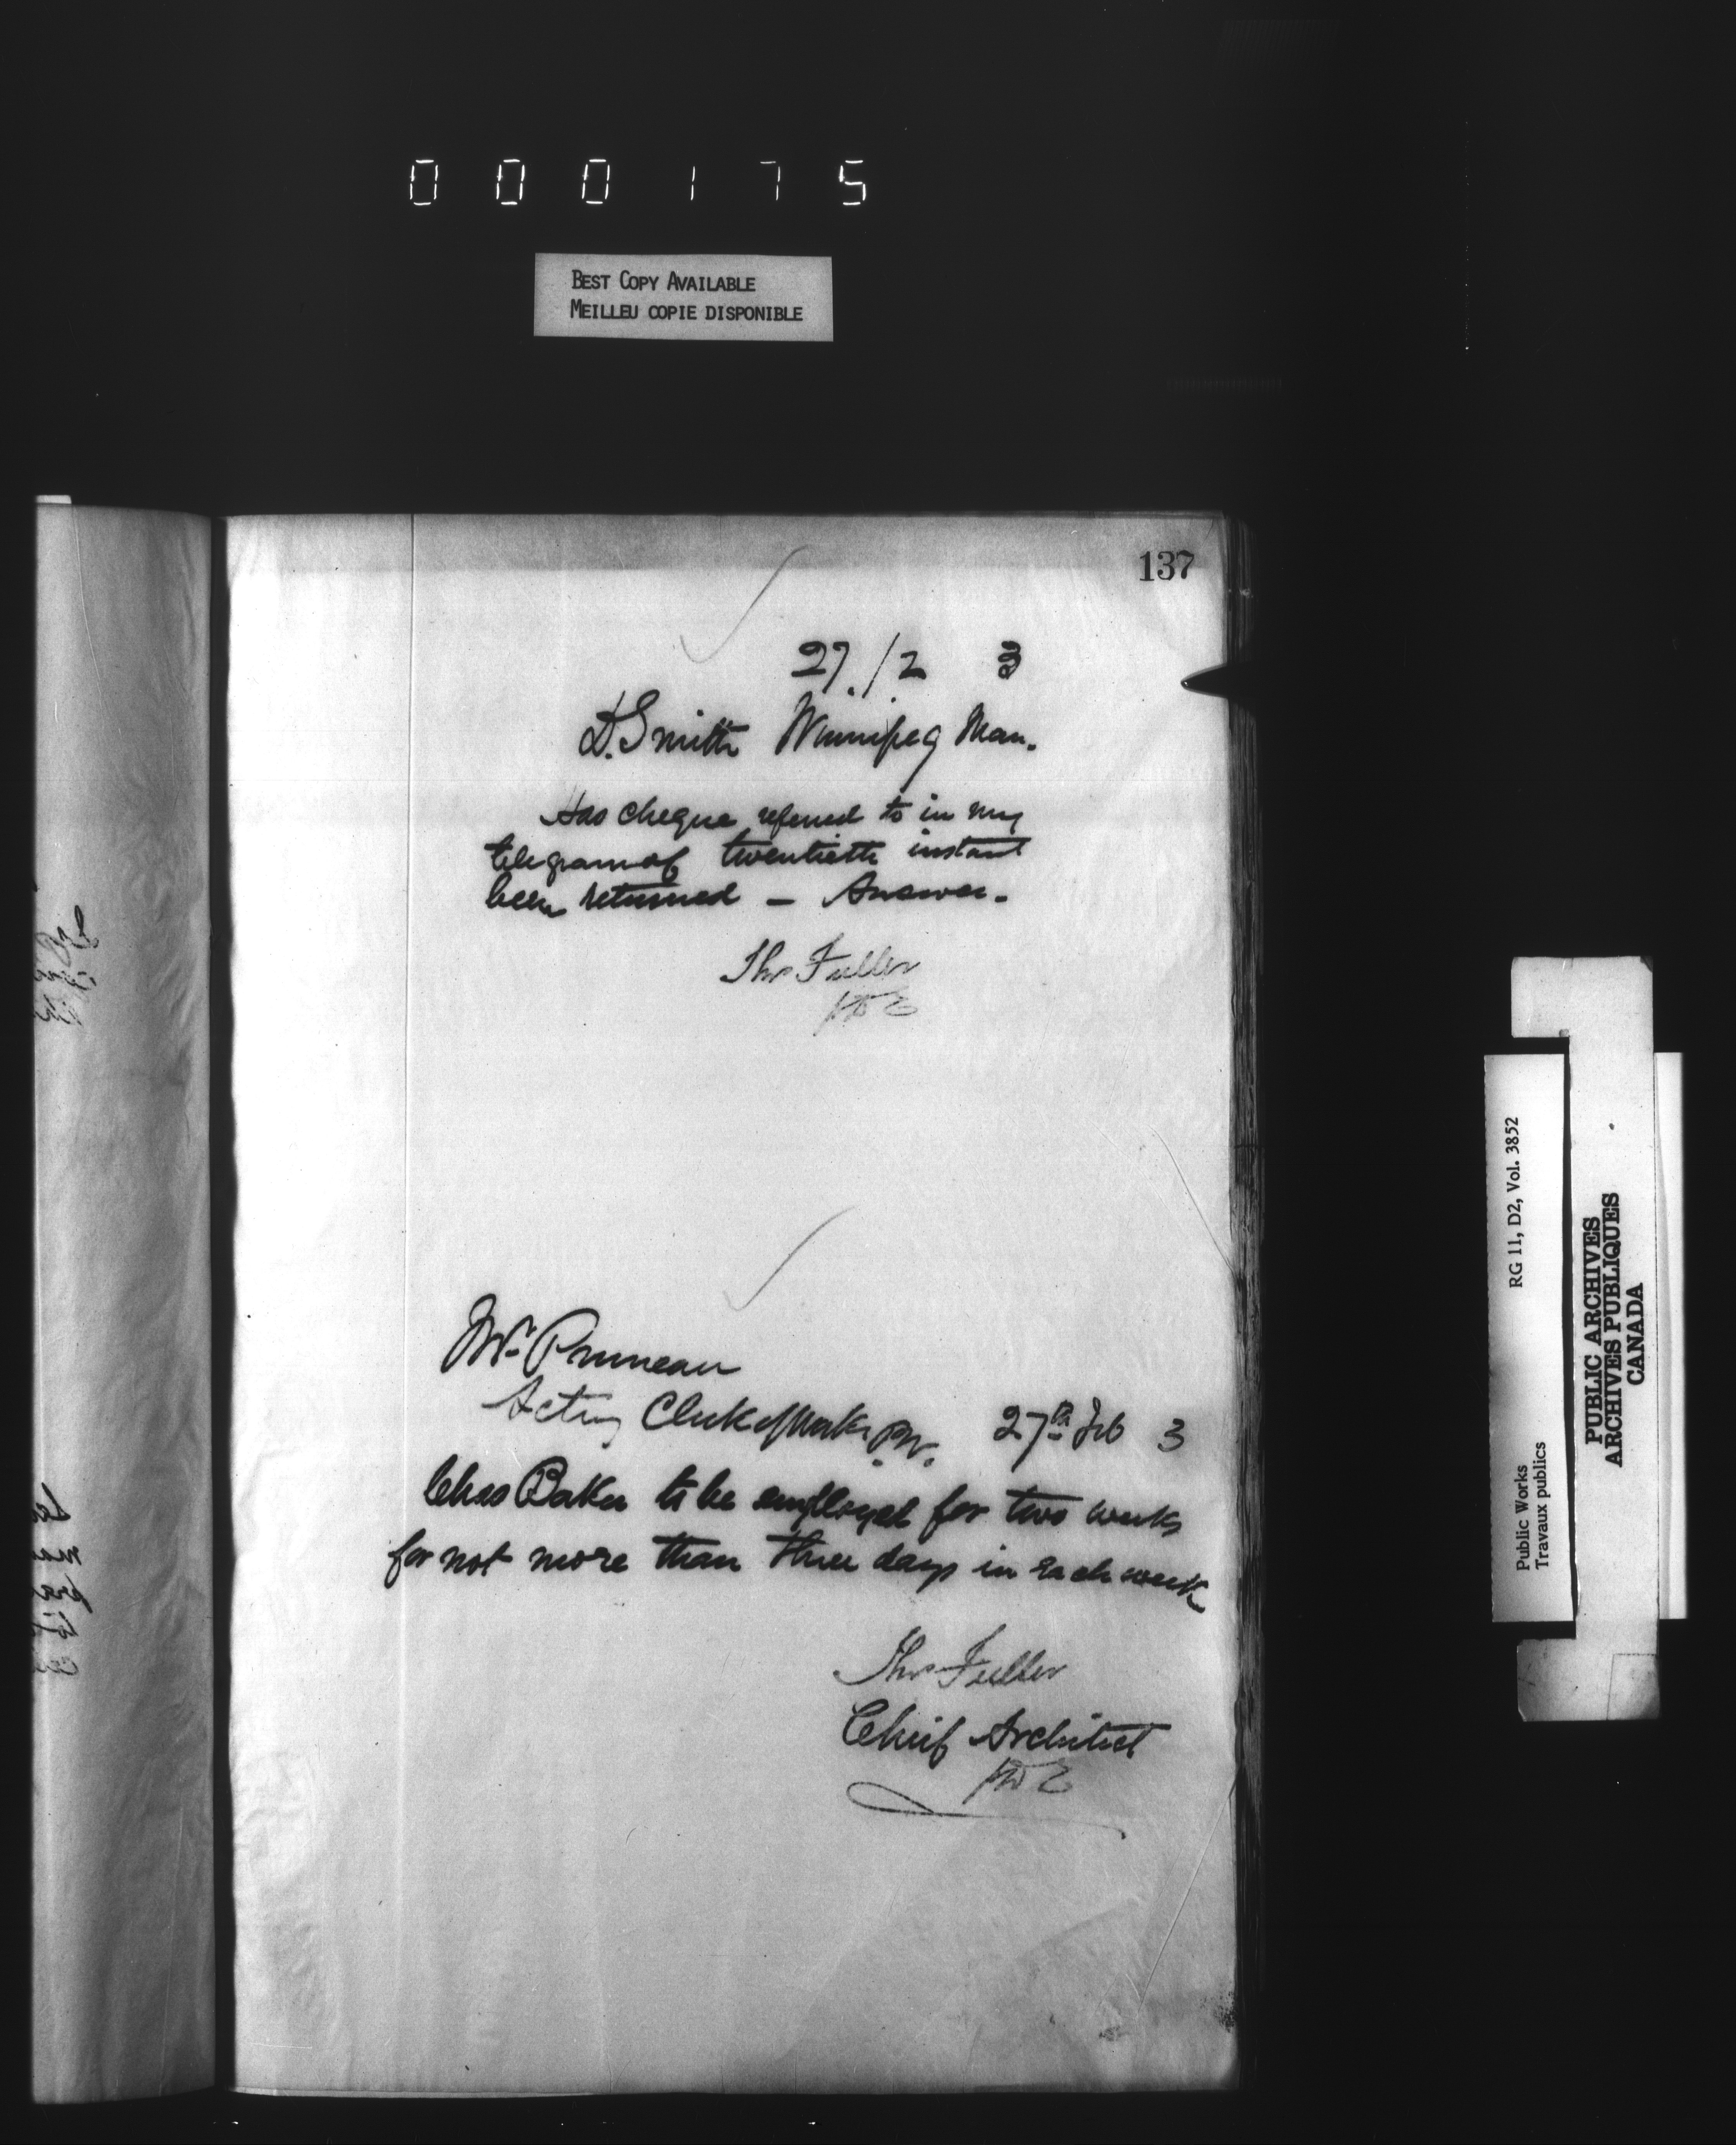 000175
BEST COPY AVAILABLE
MEILLEU COPIE DISPONIBLE
137
27./2 3
D. Smith Winnipeg Man.
Has cheque referred to in my
telegram of twentieth instant
been returned — Answer.
Thos Fuller
Mr. Pruneau
Acting Clerk of Works P.W. 27th Feb 3
Chas Baker to be employed for two weeks
for not more than three days in each week
Thos Fuller
Chief Architect
Public Works RG 11, D2, Vol. 3852
Travaux publics
PUBLIC ARCHIVES
ARCHIVES PUBLIQUES
CANADA